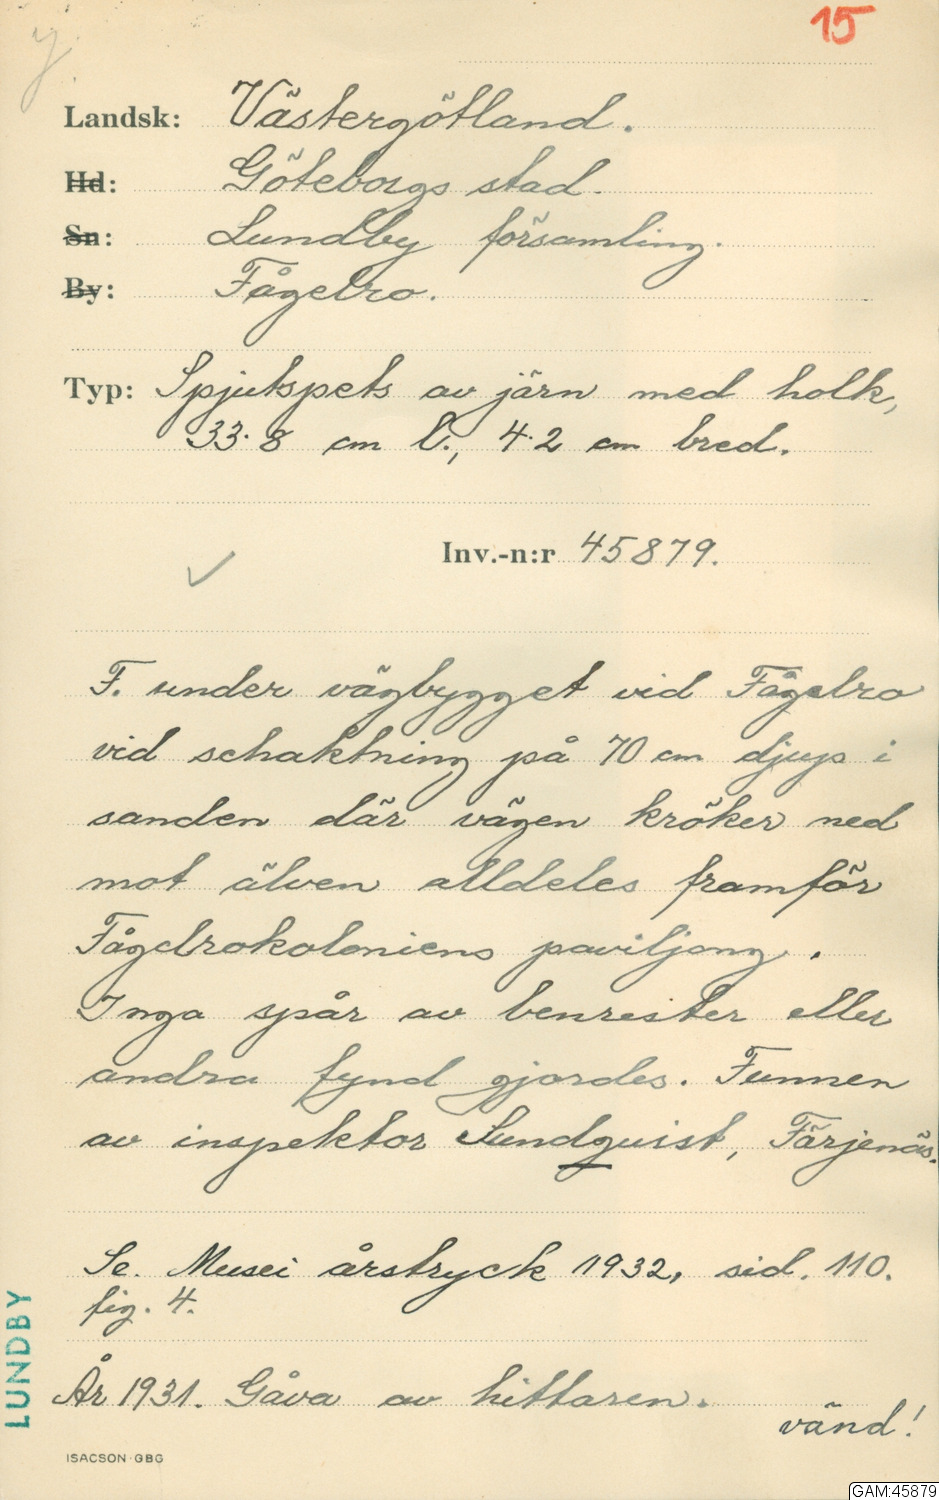 15
y.
Landsk: Västergötland.
Hd: Göteborgs stad.
Sn: Lundby församling.
By: Fågelro.
Typ: Spjutspets av järn med holk,
33.8 cm l., 4.2 cm bred.
Inv.-n:r 45879.
F. under vägbygget vid Fågelro
vid schaktning på 70 cm djup i
sanden där vägen kröker ned
mot älven alldeles framför
Fågelrokoloniens paviljong.
Inga spår av benrester eller
andra fynd gjordes. Funnen
av inspektor Sundquist, Färjenäs.
Se. Musei årstryck 1932, sid. 110.
fig. 4.
År 1931. Gåva av hittaren.
vänd!
LUNDBY
ISACSON·GBG
GAM:45879